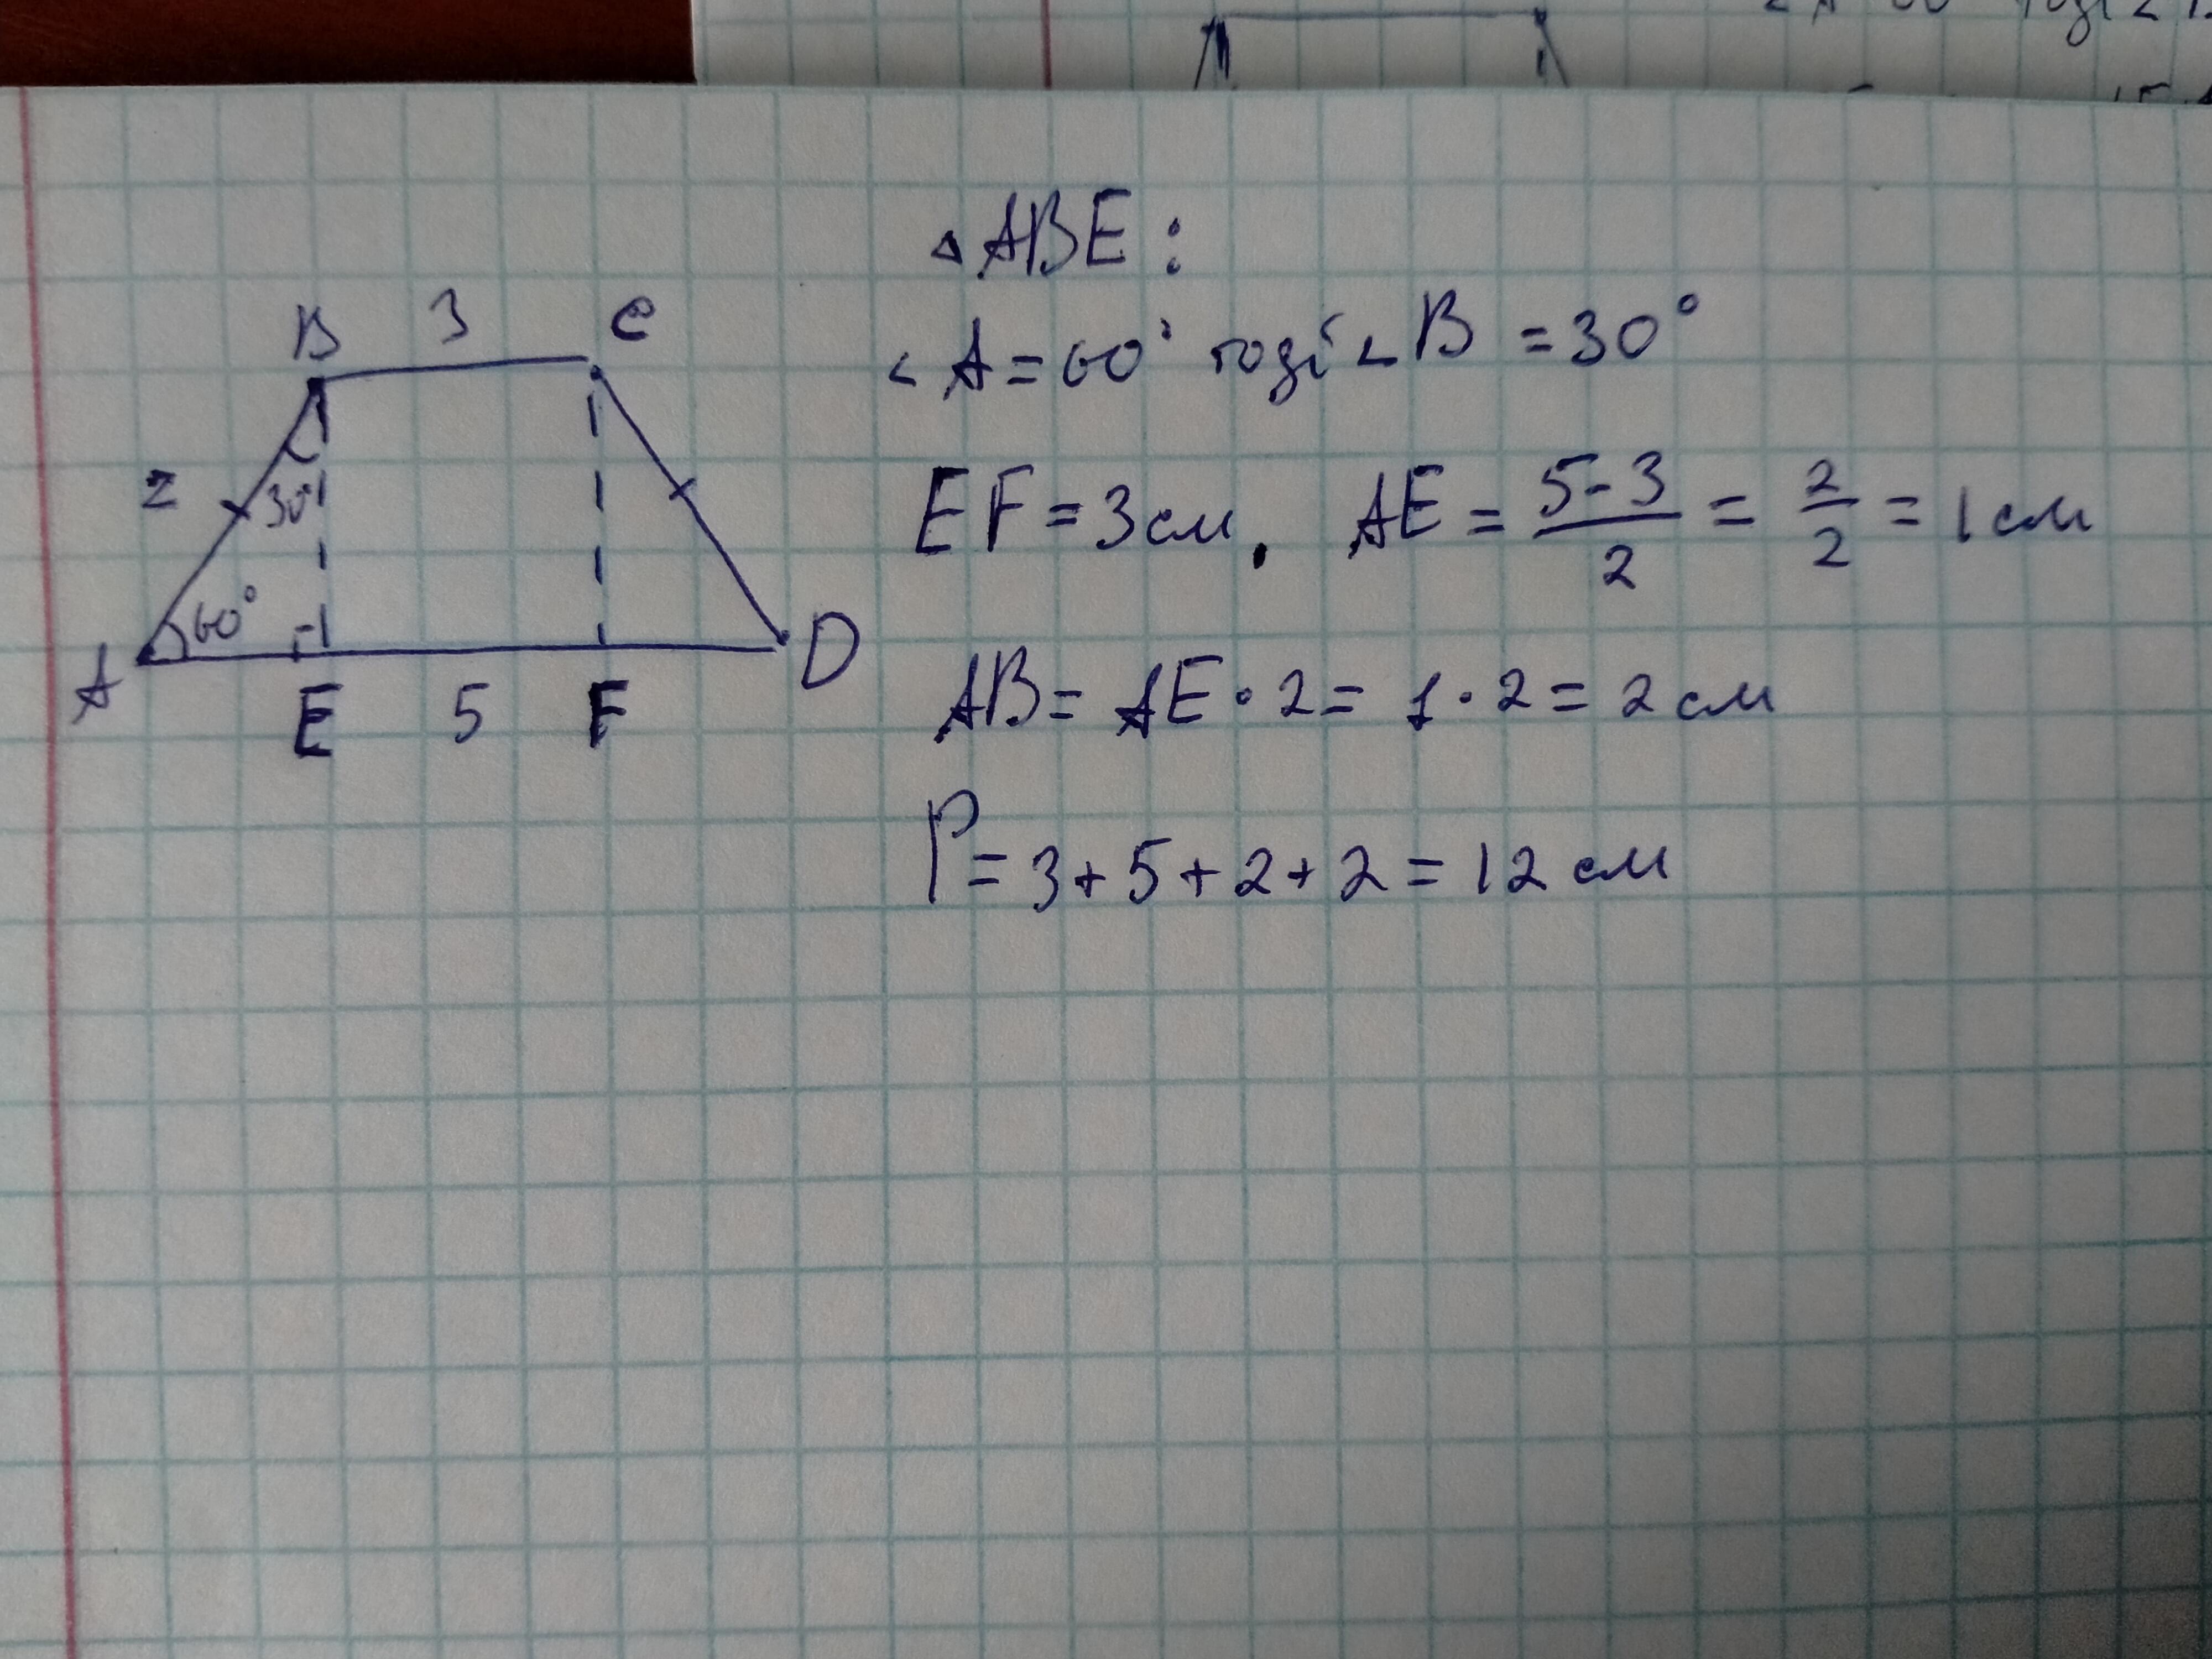 B 3 C
2
30°
60°
A E 5 F D
△ABE:
∠A = 60° тоді ∠B = 30°
EF = 3 см, AE = 5-3/2 = 2/2 = 1 см
AB = AE · 2 = 1 · 2 = 2 см
P = 3 + 5 + 2 + 2 = 12 см